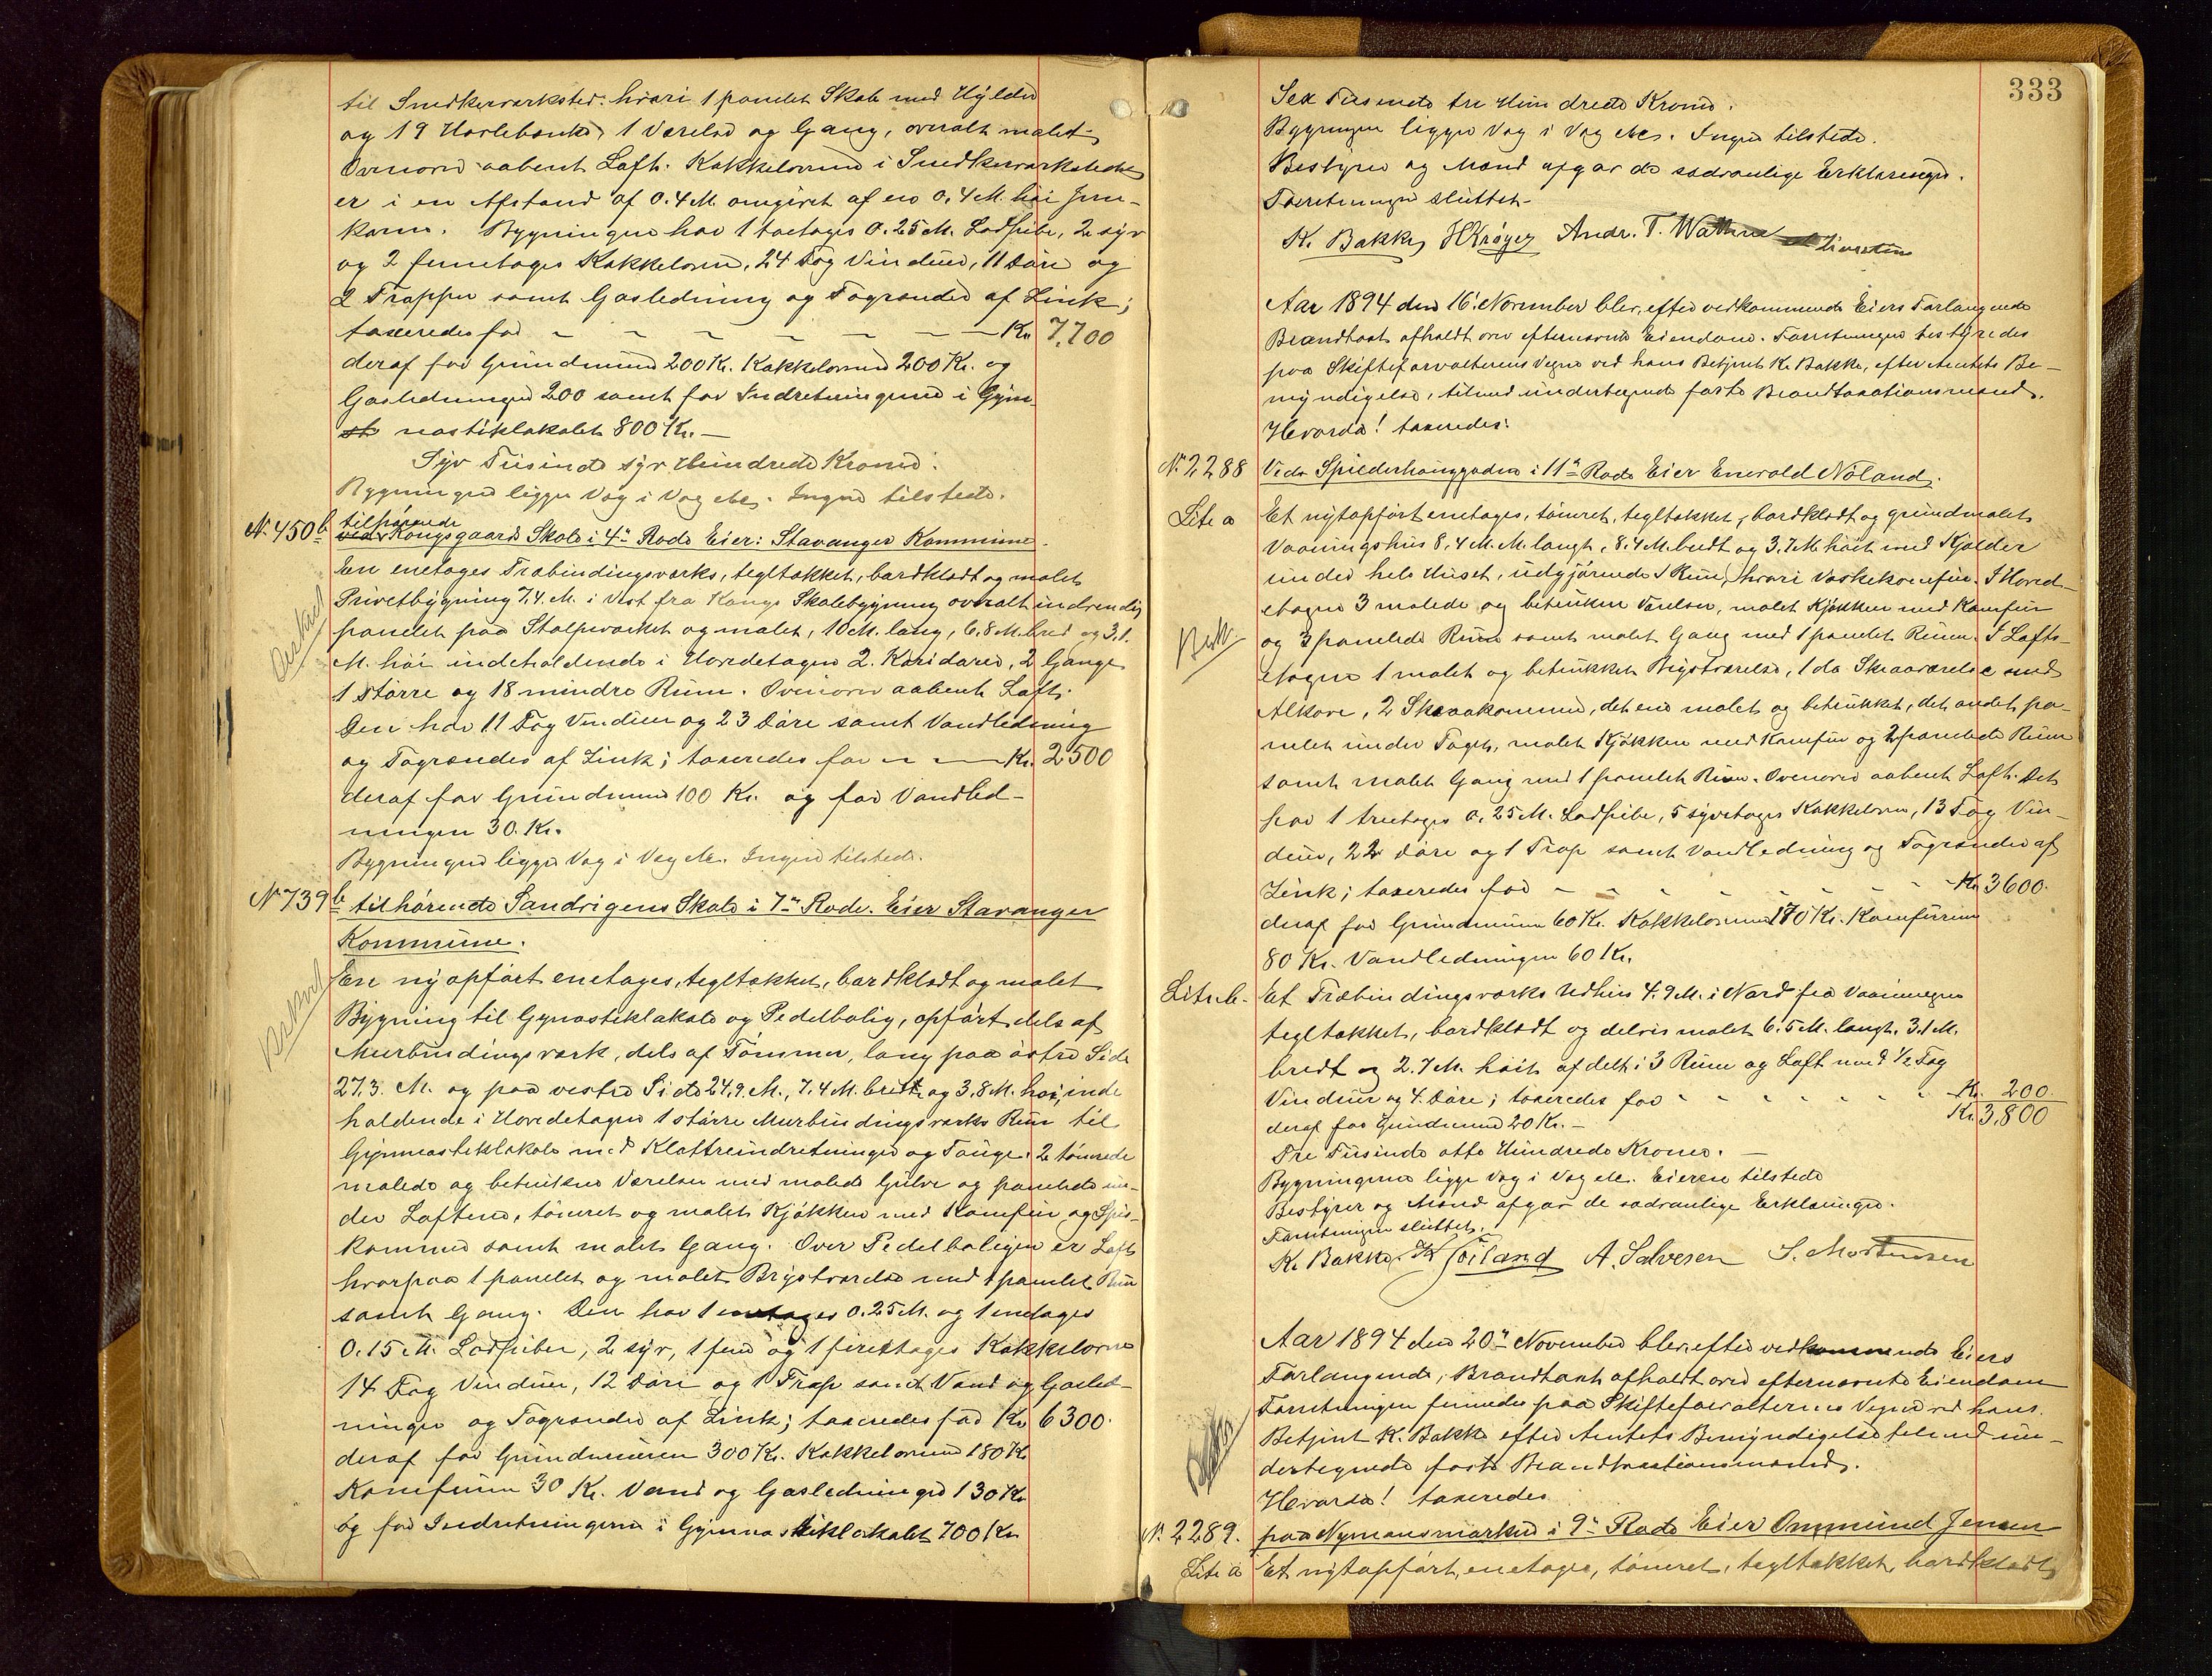 til Snedkerværksted: hvori 1 panelet Skab med Hylder
og 19 Høvlebænke, 1 Værelse og Gang, overalt malet.
Ovenover aabent Loft. Kakkelovnen i Snedkerværkstedet
er i en Afstand af 0.4 M. omgivet af en 0,4 M. høi Jern-
karm. Bygningen har 1 toetages 0.25 M. Ladpibe, 2 syv
og 2 femetages Kakkelovne, 24 Fag Vinduer, 11 Døre og
2 Trapper samt Gasledning og Tagrender af Zink;
taxeredes for - - - - - - - Kr. 7,700
deraf for Grundmuren 200 Kr. Kakkelovnene 200 Kr. og
Gasledningen 200 samt for Indretningerne i Gym-
nastiklokalet 800 Kr. -
Syv Tusinde syv Hundrede Kroner.
Bygningen ligger Vag i Vag etc. Ingen tilstede.
No. 450 b tilhørende Kongsgaards Skole i 4de Rode Eier: Stavanger Kommune.
En enetages Træbindingsværks, tegltækket, bordklædt og malet
Privetbygning 7,4. M. i Vest fra Kongs Skolebygning overalt indvendig
panelet paa Stolpeværket og malet, 10 M. lang, 6.8 M. bred og 3.1.
M. høi indeholdende i Hovedetagen 2. Koridorer, 2 Gange
1 større og 18 mindre Rum. Ovenover aabent Loft.
Den har 11 Fag Vinduer og 23 Døre samt Vandledning
og Tagrender af Zink; taxeredes for - - - Kr. 2500
deraf for Grundmuren 100 Kr. og for Vandled-
ningen 30. Kr.
Bygningen ligger Vag i Vag etc. Ingen tilstede.
No. 739 b tilhørende Sandvigens Skole i 7de Rode. Eier Stavanger
Kommune.
En ny opført enetages, tegltækket, bordklædt og malet
Bygning til Gynastiklokale og Pedelbolig, opført dels af
Murbindingsværk, dels af Tømmer, lang paa østre Side
27,3. M. og paa vestre Side 24,9. M., 7,4 M. bredt og 3,8 M. høi, inde
holdende i Hovedetagen 1 større Murbindingsværks Rum til
Gymnastiklokale med Klattreindretninger og Tauge. 2 tømrede
malede og betrukne Værelser med malede Gulve og panelede un-
der Loftene, tømret og malet Kjøkken med Komfur og Spis-
kammer samt malet Gang. Over Pedelboligen er Loft
hvorpaa 1 panelet og malet Brystværelse med 1 panelet Rum
samt Gang. Den har 1 enetages 0.25 M. og 1 enetages
0.15 M. Ladpiber, 2 syv, 1 fem og 1 fireetages Kakkelovne
14 Fag Vinduer, 12 Døre og 1 Trap samt Vand og Gasled-
ninger og Tagrender af Zink; taxeredes for Kr. 6300.
deraf for Grundmuren 300 Kr. Kakkelovnene 180 Kr.
Komfuren 30 Kr. Vand og Gasledningen 130 Kr.
og for Indretningerne i Gymnastiklokalet 700 Kr.
333
Sex Tusende tre Hundrede Kroner.
Bygningen ligger Vag i Vag etc. Ingen tilstede.
Bestyrer og Mænd afgav de sædvanlige Erklæringer.
Forretningen sluttet.
K. Bakke HKrøger Andr. T. Wathne
Aar 1894 den 16. November blev, efter vedkommende Eiers Forlangende
Brandtaxt afholdt over efternævnte Eiendom. Forretningen bestyredes
paa Skifteforvalterens Vegne ved hans Betjent K. Bakke, efter Amtets Be-
myndigelse, tilmed undertegnede faste Brandtaxationsmænd.
Hvorda! taxeredes:
No. 2288 Veds Spilderhauggaden i 11te Rode Eier Enevold Nöland.
Litr a Et nytopført enetages, tømret, tegltækket, bordklædt og grundmalet
Vaaningshus 8,4 M. M. langt, 8.4 M. bredt og 3.7 M. høit med Kjælder
under hele Huset, udgjørende 1 Rum, hvori Vaskekomfur. I Hoved-
etagen 3 malede og betrukne Værelser, malet Kjøkken med Komfur
og 3 panelede Rum samt malet Gang med 1 panelet Rum. I Lofts-
etagen 1 malet og betrukket Brystværelse, 1 do Skraaværelse med
Alkove, 2 Skraakammere, det ene malet og betrukket, det andet pa-
nelet under Taget, malet Kjøkken med Komfur og 2 panelede Rum
samt malet Gang med 1 panelet Rum. Ovenover aabent Loft. Det
har 1 treetages 0,25 M. Ladpibe, 5 syvetages Kakkelovne, 13 Fag Vin-
duer, 22 Døre og 1 Trap samt Vandledning og Tagrender af
Zink; taxeredes for - - - - - - - Kr. 3600.
deraf for Grundmuren 60 Kr. Kakkelovnene 170 Kr. Komfurene
80 Kr. Vandledningen 60 Kr.
Litr. b. Et Træbindingsværks Udhus 4.9 M. i Nord fra Vaaningen
tegltækket, bordklædt og delvis malet 6.5 M. langt. 3.1 M.
bredt og 2.7 M. høit afdelt i 3 Rum og Loft med 1/2 Fag
Vinduer og 4. Døre; taxeredes for - - - - - Kr. 200.
deraf for Grundmuren 20 Kr. - Kr. 3,800
Tre Tusinde otte Hundrede Kroner. -
Bygningerne ligge Vag i Vag etc. Eieren tilstede
Bestyrer og Mænd afgav de sædvanlige Erklæringer.
Forretningen sluttet.
K. Bakke. A. Salvesen S. Mortensen
Aar 1894 den 20de November blev, efter vedkommende Eiers
Forlangende, Brandtaxt afholdt over efternævnte Eiendom
Forretningen paa Skifteforvalterens Vegne ved hans
Betjent K. Bakke efter Amtets Bemyndigelse tilmed un-
dertegnede faste Brandtaxationsmænd.
Hvorda! taxeredes
No. 2289. paa Nymansmarken i 9de Rode Eier Ommund Jensen
Litr a Et nytopført, enetages, tømret, tegltækket, bordklædt,